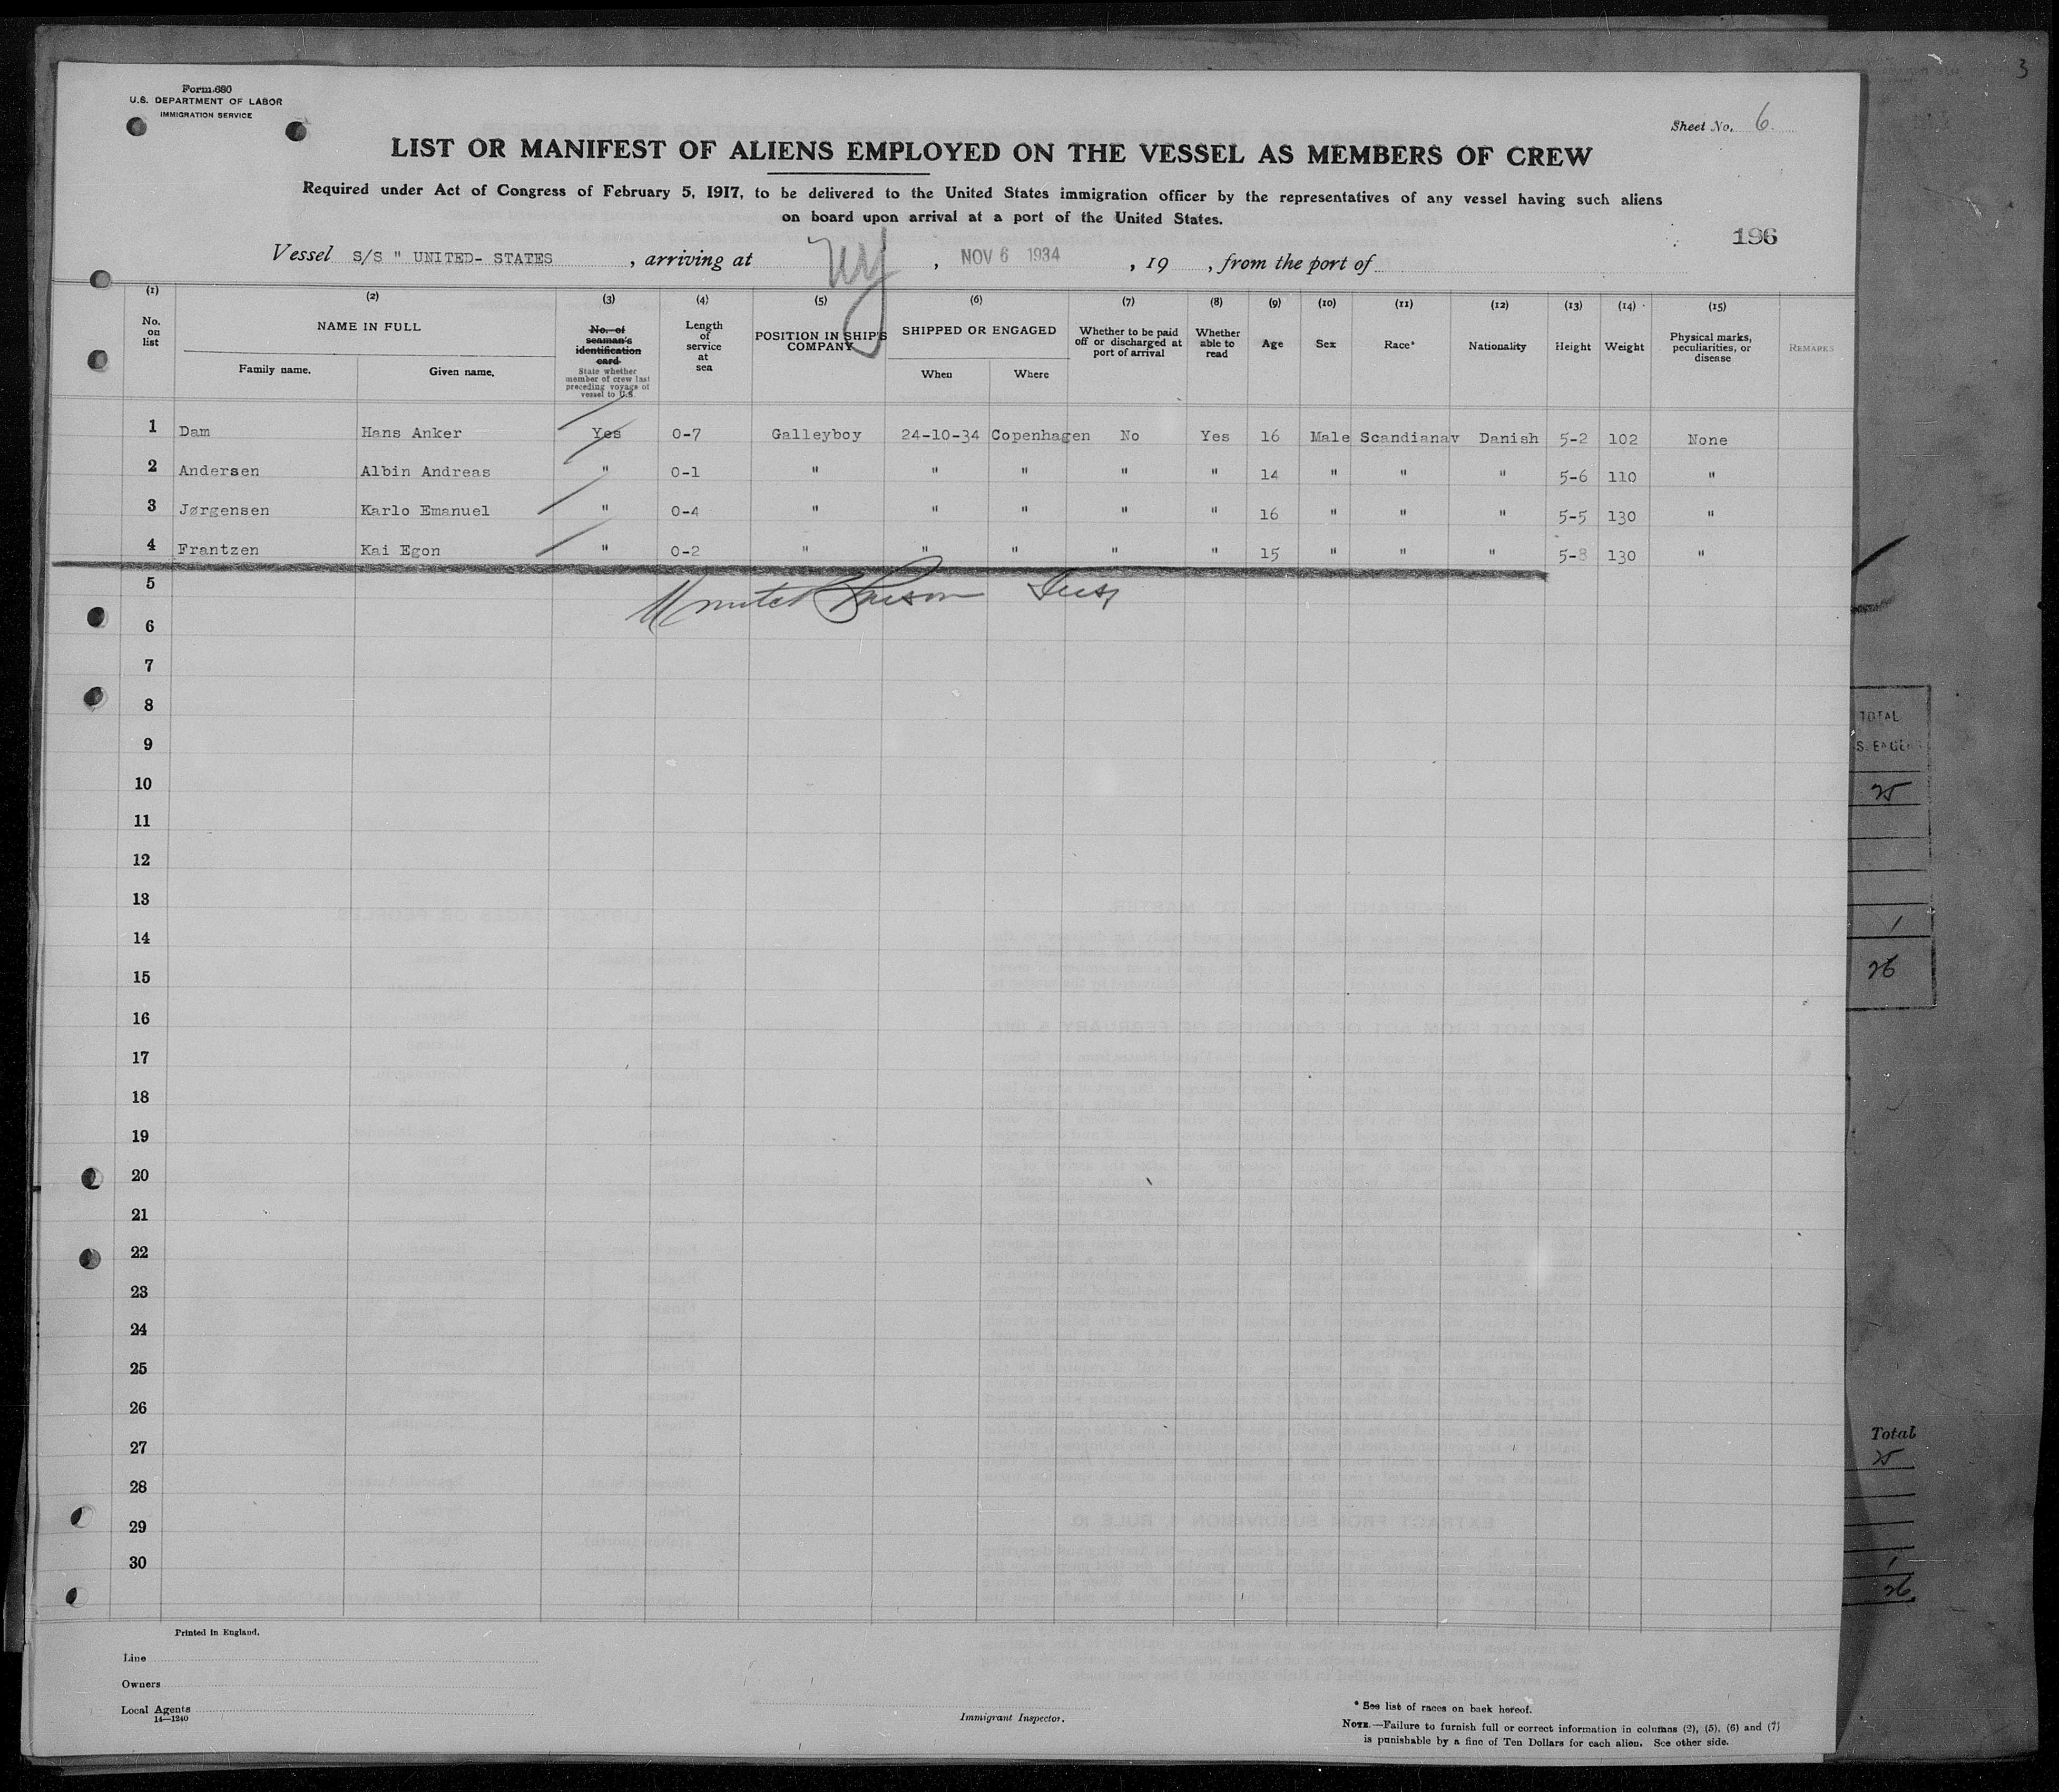 3
Form 680
U.S. DEPARTMENT OF LABOR
IMMIGRATION SERVICE
Sheet No. 6
LIST OR MANIFEST OF ALIENS EMPLOYED ON THE VESSEL AS MEMBERS OF CREW
Required under Act of Congress of February 5, 1917, to be delivered to the United States immigration officer by the representatives of any vessel having such aliens
on board upon arrival at a port of the United States.
196
Vessel S/S " UNITED- STATES , arriving at NY , NOV 6 1934 , 19 , from the port of
(1) (2) (3) (4) (5) (6) (7) (8) (9) (10) (11) (12) (13) (14) (15)
No. on list
NAME IN FULL
Family name. Given name.
No. of seaman's identification card
State whether member of crew last preceding voyage of vessel to U.S.
Length of service at sea
POSITION IN SHIP'S COMPANY
SHIPPED OR ENGAGED
When Where
Whether to be paid off or discharged at port of arrival
Whether able to read
Age
Sex
Race*
Nationality
Height
Weight
Physical marks, peculiarities, or disease
REMARKS
1 Dam Hans Anker Yes 0-7 Galleyboy 24-10-34 Copenhagen No Yes 16 Male Scandianav Danish 5-2 102 None
2 Andersen Albin Andreas " 0-1 " " " " " 14 " " " 5-6 110 "
3 Jørgensen Karlo Emanuel " 0-4 " " " " " 16 " " " 5-5 130 "
4 Frantzen Kai Egon " 0-2 " " " " " 15 " " " 5-8 130 "
5
6
7
8
9
10
11
12
13
14
15
16
17
18
19
20
21
22
23
24
25
26
27
28
29
30
TOTAL
25
1
26
Total
25
1
26
Printed in England.
Line
Owners
Local Agents
14—1240
Immigrant Inspector.
* See list of races on back hereof.
NOTE.—Failure to furnish full or correct information in columns (2), (5), (6) and (7)
is punishable by a fine of Ten Dollars for each alien. See other side.